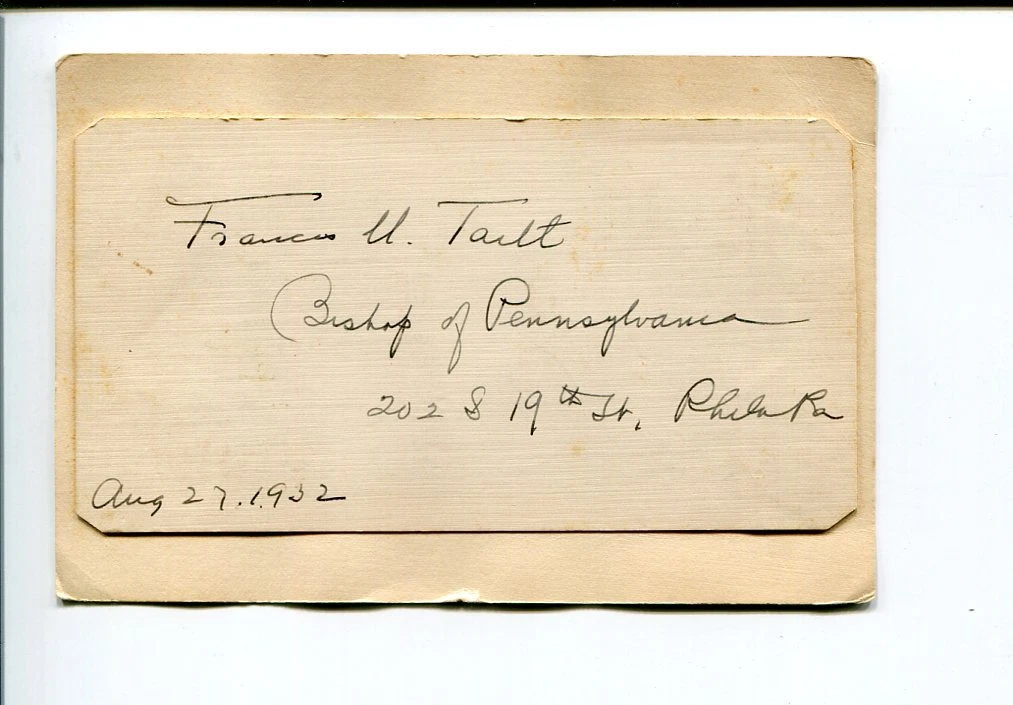 Francis M. Taitt
Bishop of Pennsylvania
202 S 19th St, Phila Pa
Aug 27. 1932